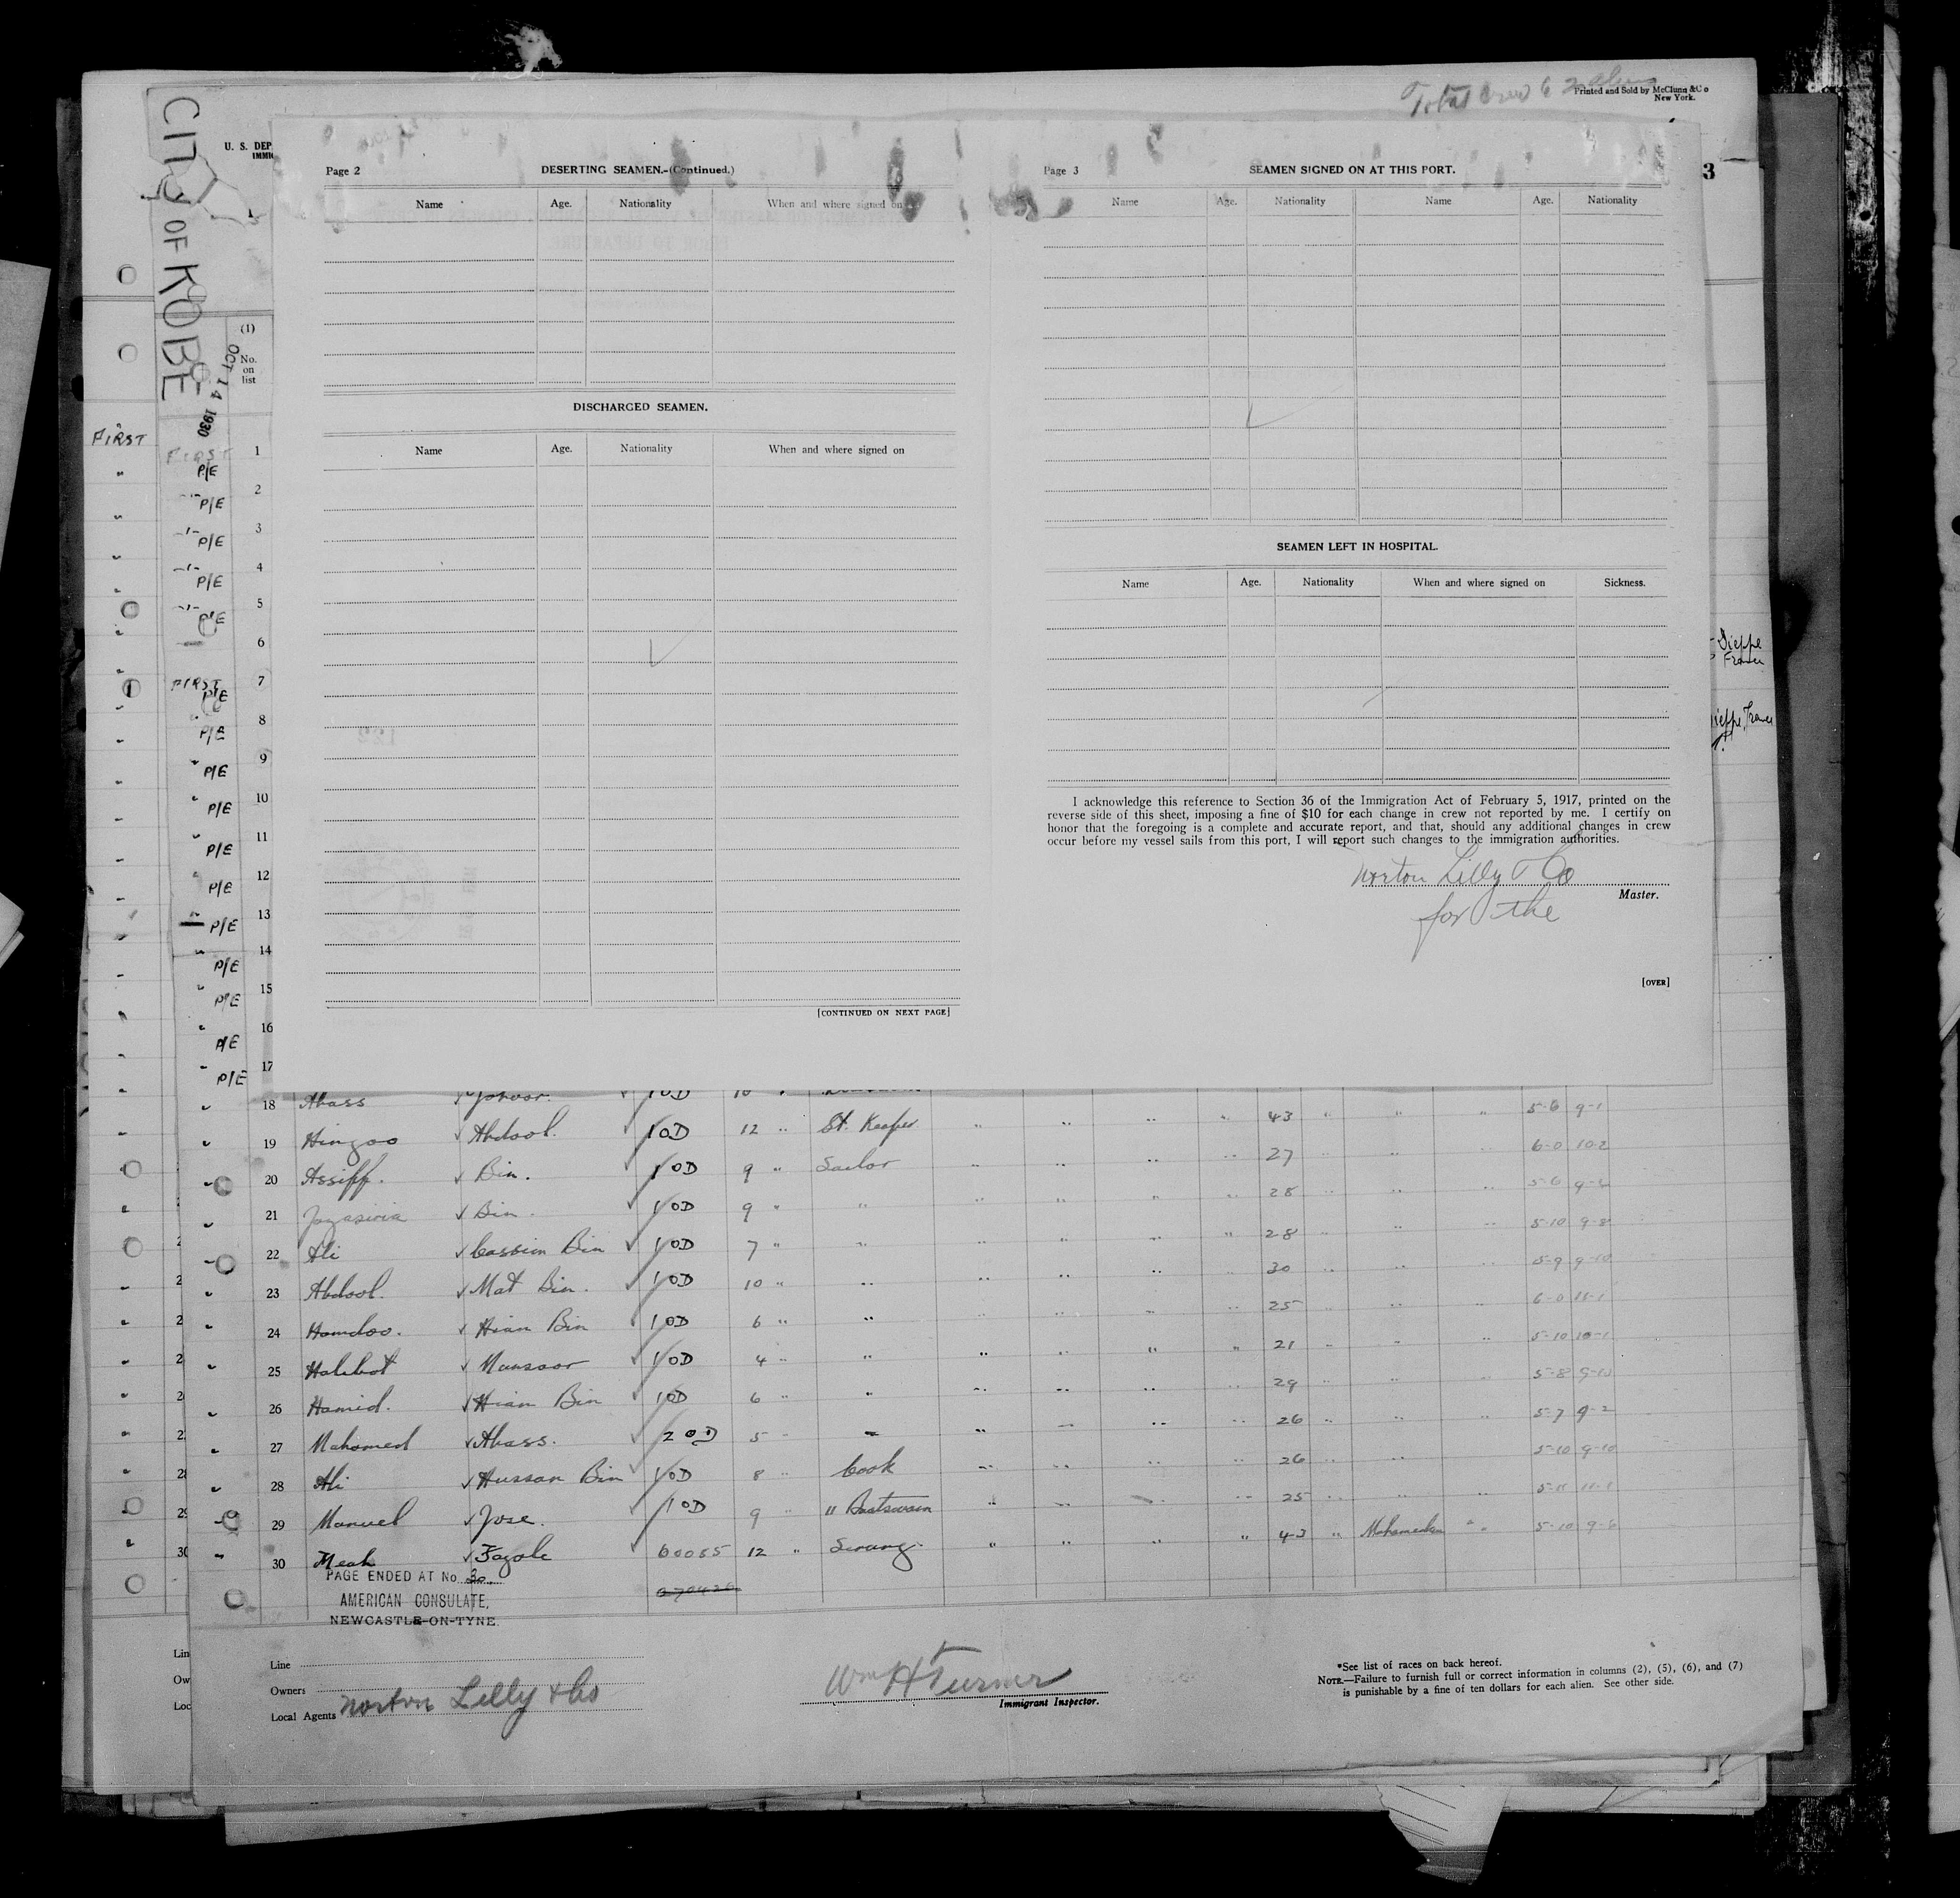 Total Crew 62 aliens
Printed and Sold by McClunn & Co
New York.
CITY OF KOBE
OCT 14 1930
U. S. DEP
IMMIG
3
(1)
No.
on
list
Page 2
DESERTING SEAMEN.-(Continued.)
Name Age. Nationality When and where signed on
DISCHARGED SEAMEN.
Name Age. Nationality When and where signed on
[CONTINUED ON NEXT PAGE]
Page 3
SEAMEN SIGNED ON AT THIS PORT.
Name Age. Nationality Name Age. Nationality
SEAMEN LEFT IN HOSPITAL.
Name Age. Nationality When and where signed on Sickness.
I acknowledge this reference to Section 36 of the Immigration Act of February 5, 1917, printed on the
reverse side of this sheet, imposing a fine of $10 for each change in crew not reported by me. I certify on
honor that the foregoing is a complete and accurate report, and that, should any additional changes in crew
occur before my vessel sails from this port, I will report such changes to the immigration authorities.
Norton Lilly & Co
Master.
for the
[OVER]
Dieppe
France
Dieppe, France
FIRST
FIRST 1
P/E
P/E 2
P/E 3
P/E 4
P/E 5
6
FIRST 7
P/E
P/E 8
P/E 9
P/E 10
P/E 11
P/E 12
P/E 13
P/E 14
P/E 15
P/E 16
P/E 17
18 Abass 10D 10 43 " 5-6 9-1
19 Hingoo Abdool. 10D 12 " St. Keeper " " " " 27 " 6-0 10-2
20 Assiff. Bin. 10D 9 " Sailor " " " " 28 " 5-6
21 Bin. 10D 9 " " " " " " 28 " 5-10 9-8
22 Ali Cassim Bin 10D 7 " " " " " " 30 " 5-9 9-10
23 Abdool. Mat Bin. 10D 10 " " " " " " 25 " 6-0 11-1
24 Hamdoo. Hian Bin 10D 6 " " " " " " 21 " 5-10 10-1
25 Mansoor 10D 4 " " " " " " 29 " 5-8 9-10
26 Hamid. Hian Bin 10D 6 " " " " " " 26 " 5-7 9-2
27 Mahomed Abass. 20D 5 " " " " " " 26 " 5-10 9-10
28 Ali Hussan Bin 10D 8 " Cook " " " " 25 " 5-11 11-1
29 Manuel Jose. 10D 9 " " Boatswain " " " " 43 " Mahomedan " 5-10 9-6
30 Meah Fazole 60085 12 " Serang. " " " "
PAGE ENDED AT No 30.
AMERICAN CONSULATE,
NEWCASTLE-ON-TYNE.
Line
Owners
Local Agents Norton Lilly & Co
Wm H Turner
Immigrant Inspector.
*See list of races on back hereof.
NOTE.—Failure to furnish full or correct information in columns (2), (5), (6), and (7)
is punishable by a fine of ten dollars for each alien. See other side.
Lin
Ow
Loc